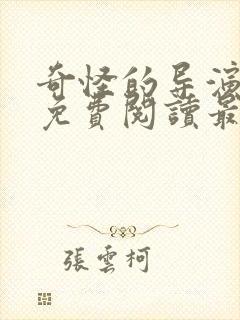 奇怪的导演
免費閱讀最
張雲柯